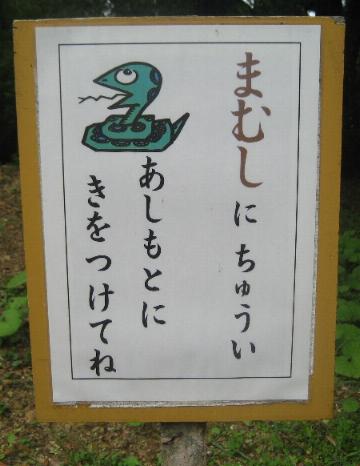 まむしにちゅうい
あしもとに
きをつけてね